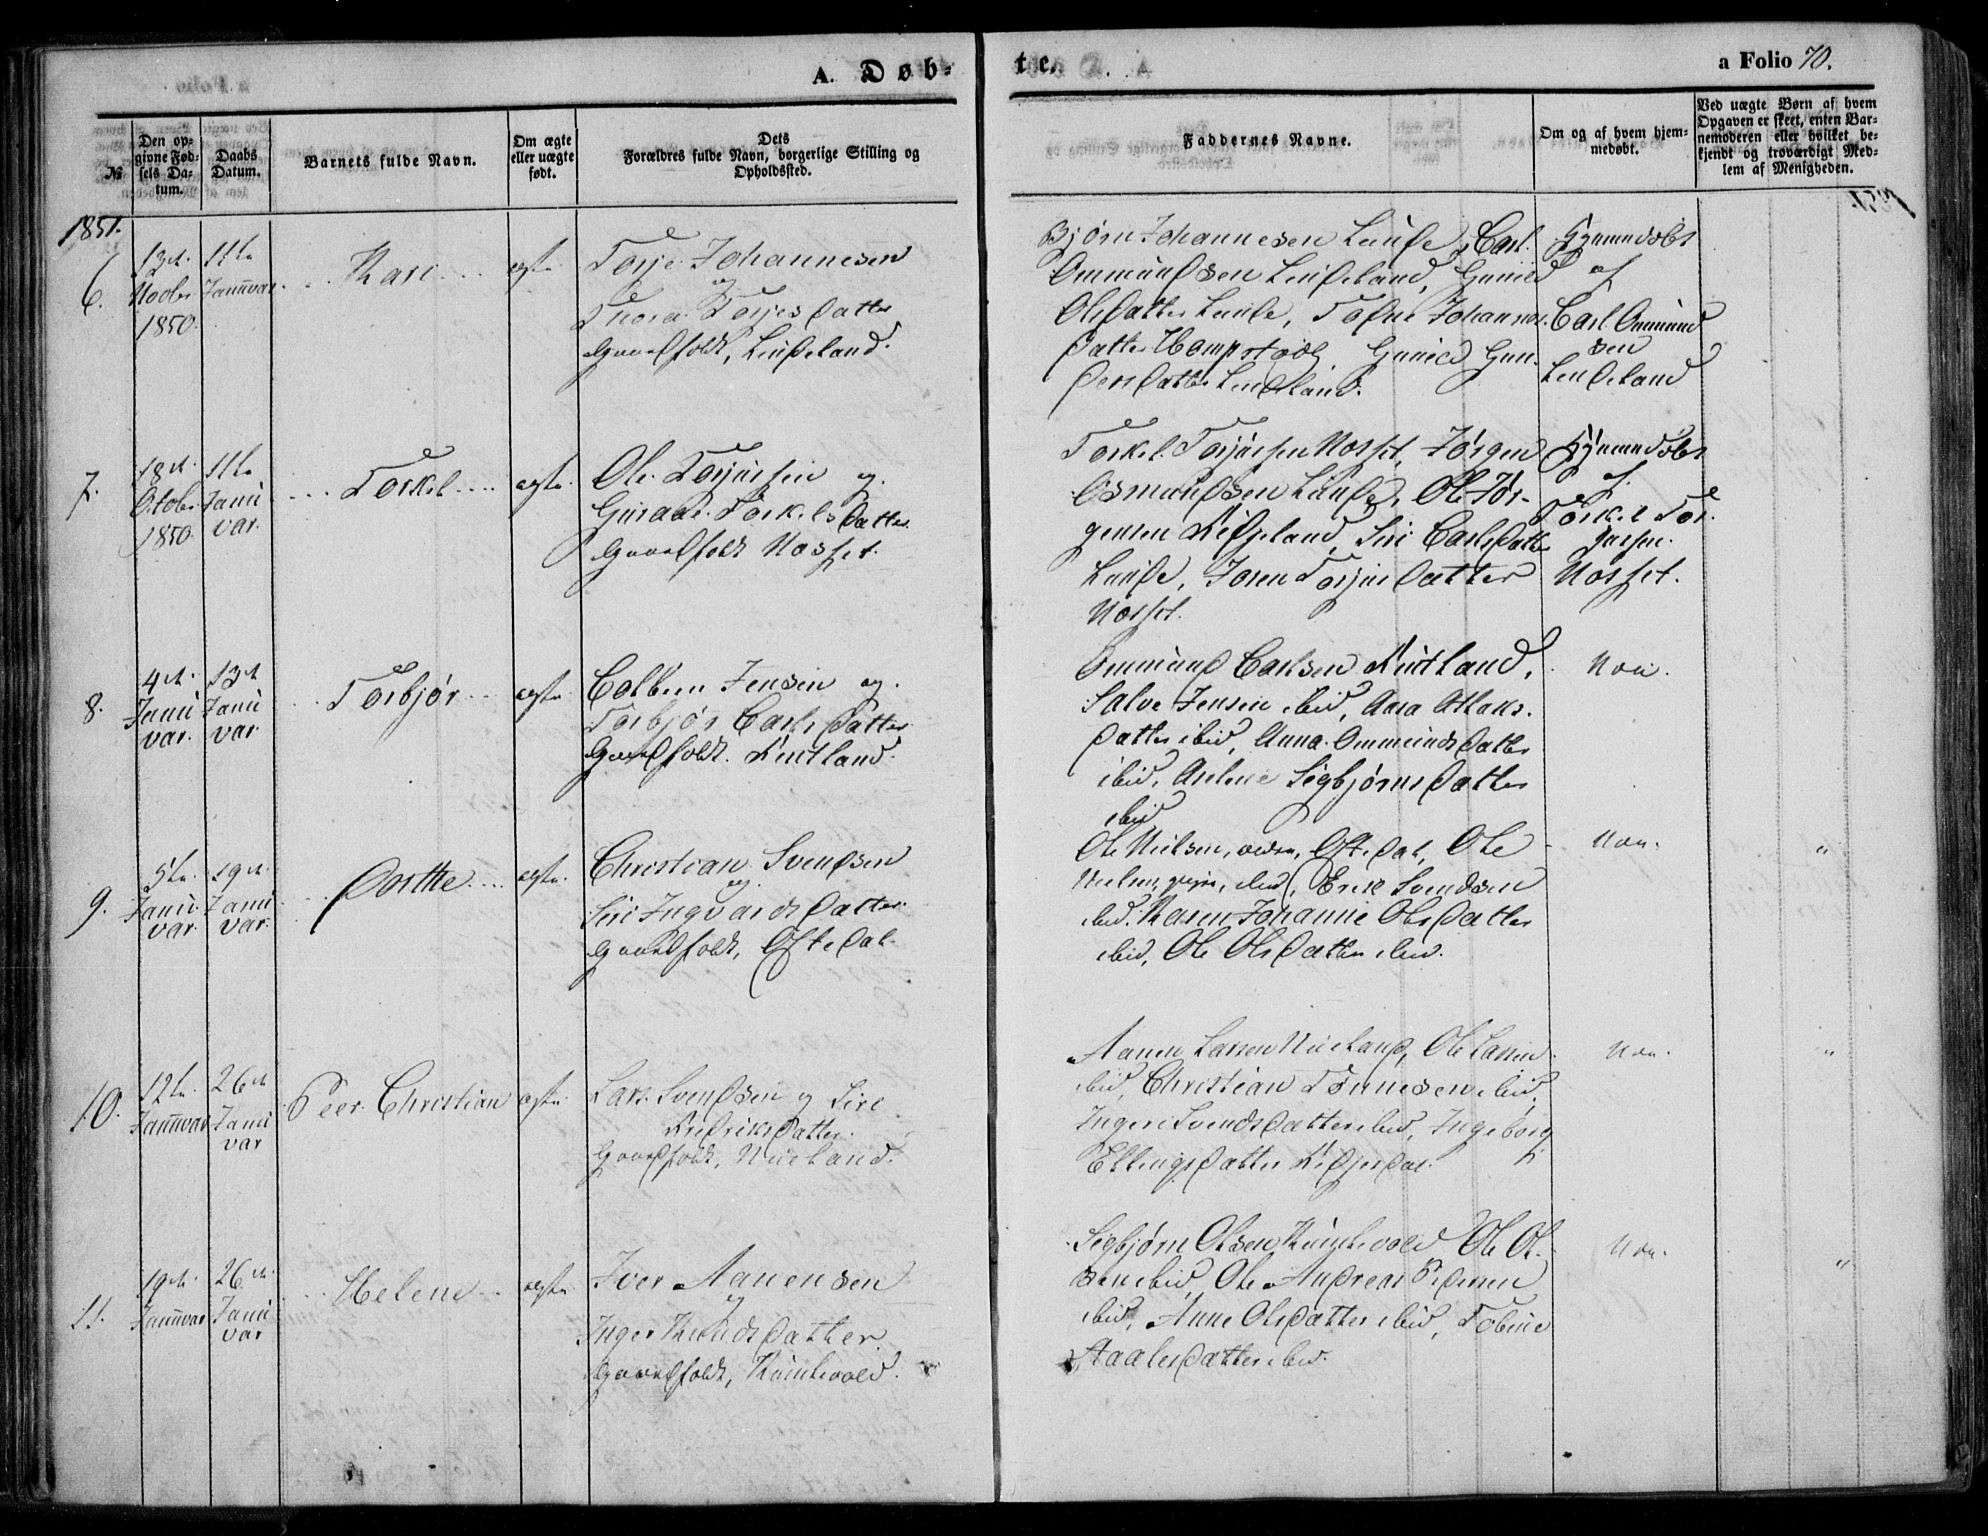 A. Døb-
te.
a Folio 70.
№
Den op-
givne Fød-
sels Da-
tum.
Daabs
Datum.
Barnets fulde Navn.
Om ægte
eller uægte
født.
Dets
Forældres fulde Navn, borgerlige Stilling og
Opholdssted.
Faddernes Navne.
Om og af hvem hjem-
medøbt.
Ved uægte Børn af hvem
Opgaven er skeet, enten Bar-
nemoderen eller hvilket be-
kjendt og troværdigt Med-
lem af Menigheden.
1851.
6.
13de
Novbr
1850.
11te
Januar.
Kari
ægte
Torje Johannesen
og
Thora Torjesdatter
Gaardfolk, Lindeland.
Bjørn Johannesen Lunde, Carl
Ommundsen Lindeland, Gunild
Olsdatter Lunde, Johannes-
datter Gunild Gun-
dersdatter Lindeland.
Hjemmedøbt
af
Carl Ommund
sen
Lindeland
7.
18de
Octobr
1850.
11te
Janu
var.
Torkel
ægte
Ole Torjussen og
Torkelsdatter
Gaardfolk Mosset.
Torkel Torjussen Mosset, Jørgen
Osmundsen Lunde, Ole Jør-
gensen Siri Carlsdatter
Lunde, Joren Torjusdatter
Mosset.
Hjemmedøbt
af
Torkel Tor-
jussen
Mosset.
8.
4de
Janu
var.
13de
Janu
var.
Torbjør
ægte
Colben Jensen og
Torbjør Carlsdatter
Gaardfolk.
Ommund Carlsen
Salve Jensen ibid, Aasa Atlaks-
datter ibid, Anna Ommundsdatter
ibid, Aselene Sigbjørnsdatter
ibid
Nei.
9.
5te
Janu
var.
19de
Janu
var.
Dorthe
ægte
Christian Svendsen
og
Siri Ingvardsdatter
Gaardfolk, Oftedal.
Ole Nielsen, ældre, Oftedal, Ole
Nielsen, yngre, ibid, Erik Svendsen
ibid. Karen Johanne Olsdatter
ibid, Ole Olsdatter ibid.
Nei.
"
10.
12te
Januar
26de
Janu
var
Peer Christian
ægte
Lars Svendsen og Siri
Fredriksdatter
Gaardfolk, Nueland.
Aanen Larsen Nueland, Ole Larsen
ibid, Christian Tønnesen ibid,
Ingeri Svendsdatter ibid, Ingeborg
Ellingsdatter
Nei.
"
11.
19de
Januar
26de
Janu
var
Helene
ægte
Iver Aanensen
og
Inger Knudsdatter
Gaardfolk, Kumlevold.
Sigbjørn Olsen Kumlevold, Ole Ol-
sen ibid, Ole Andreas Pedersen
ibid, Anne Olsdatter ibid, Tobine
Staalesdatter ibid.
Nei.
"